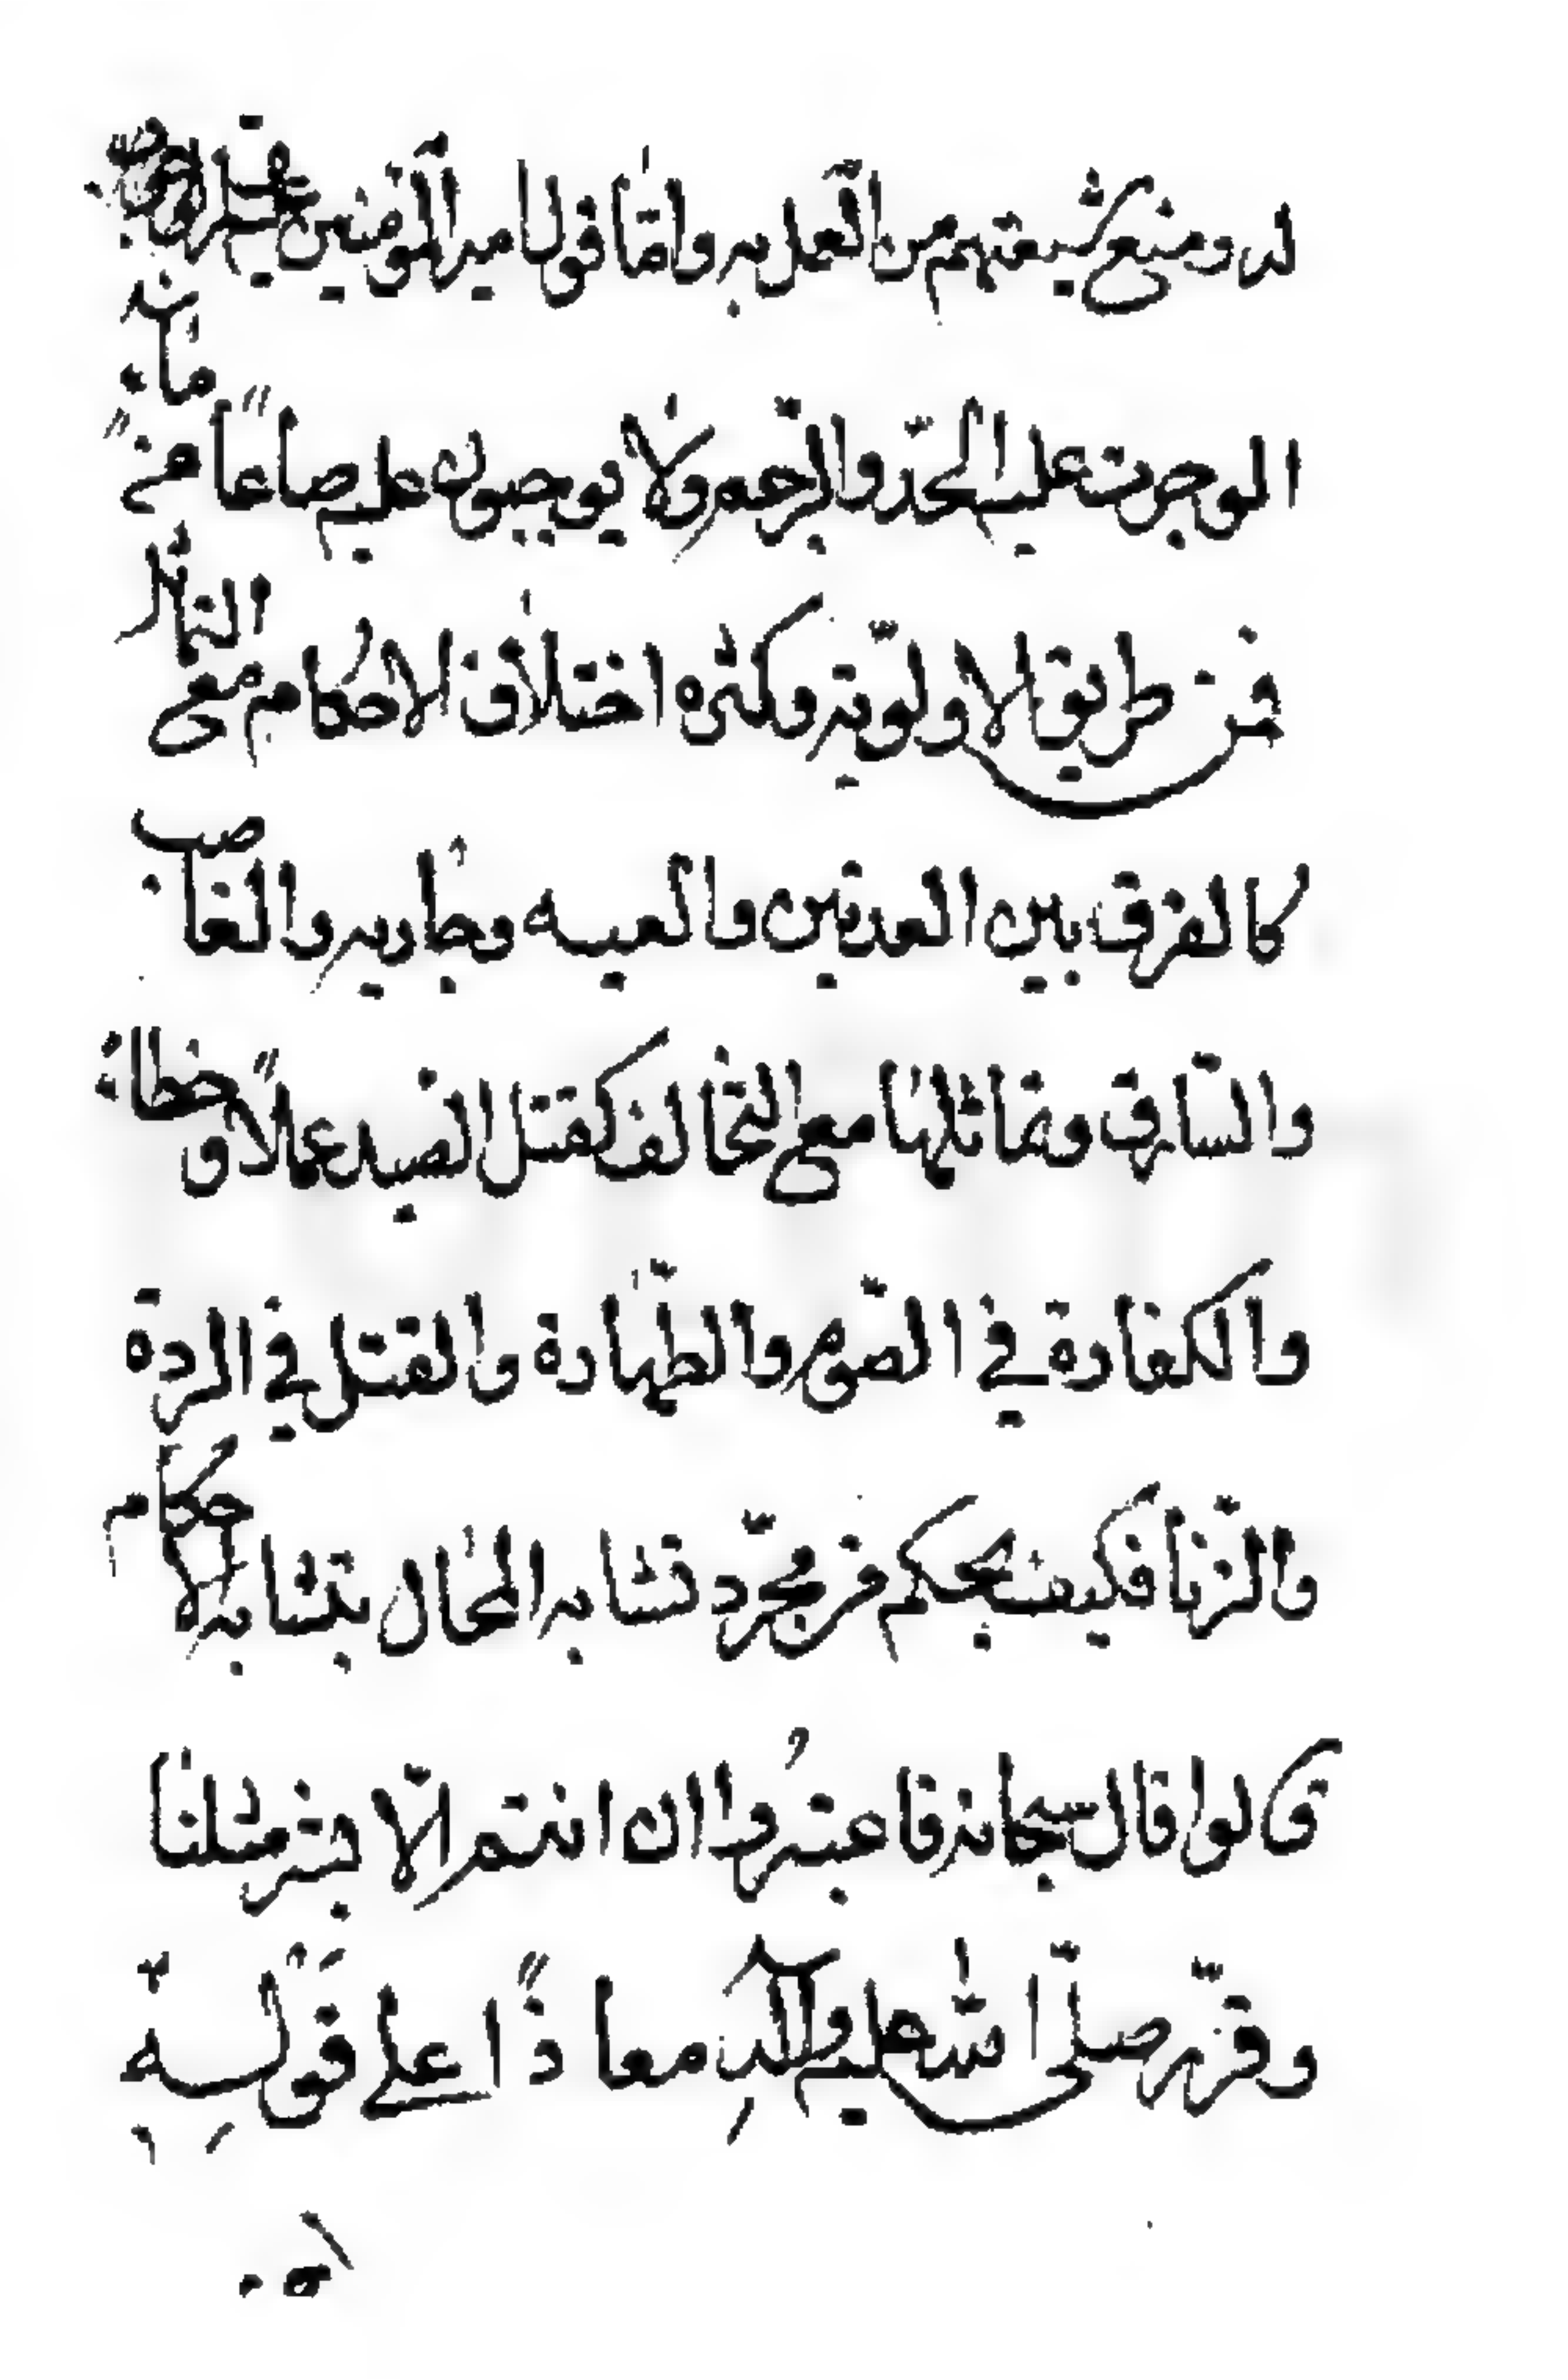 له ومنع شيعتهم من العمل به واما قول امير المؤمنين
اتوجبون عليه الحدّ والرّجم ولا يوجبون عليه صاعًا من ماء
فمن طريق الاولوية وكثره اختلاف الاحكام مع التماثل
كالفرق بين العدتين والعبيه وجاريه والغاصب
والسّارق ومماثلها مع التخالف كقتل الصيد عملًا وخطاءً
والكفارة في الصّوم والظّهارة والقتل في الردة
والزّنا فكيف يحكم فى مجرّد تشابه المحال بتشابه الاحكام
قالوا قال سبحانه فاعتبروا ان انتم الّا بشر مثلنا
وقرّره صلّى الله عليه وآله معاذًا على قوله